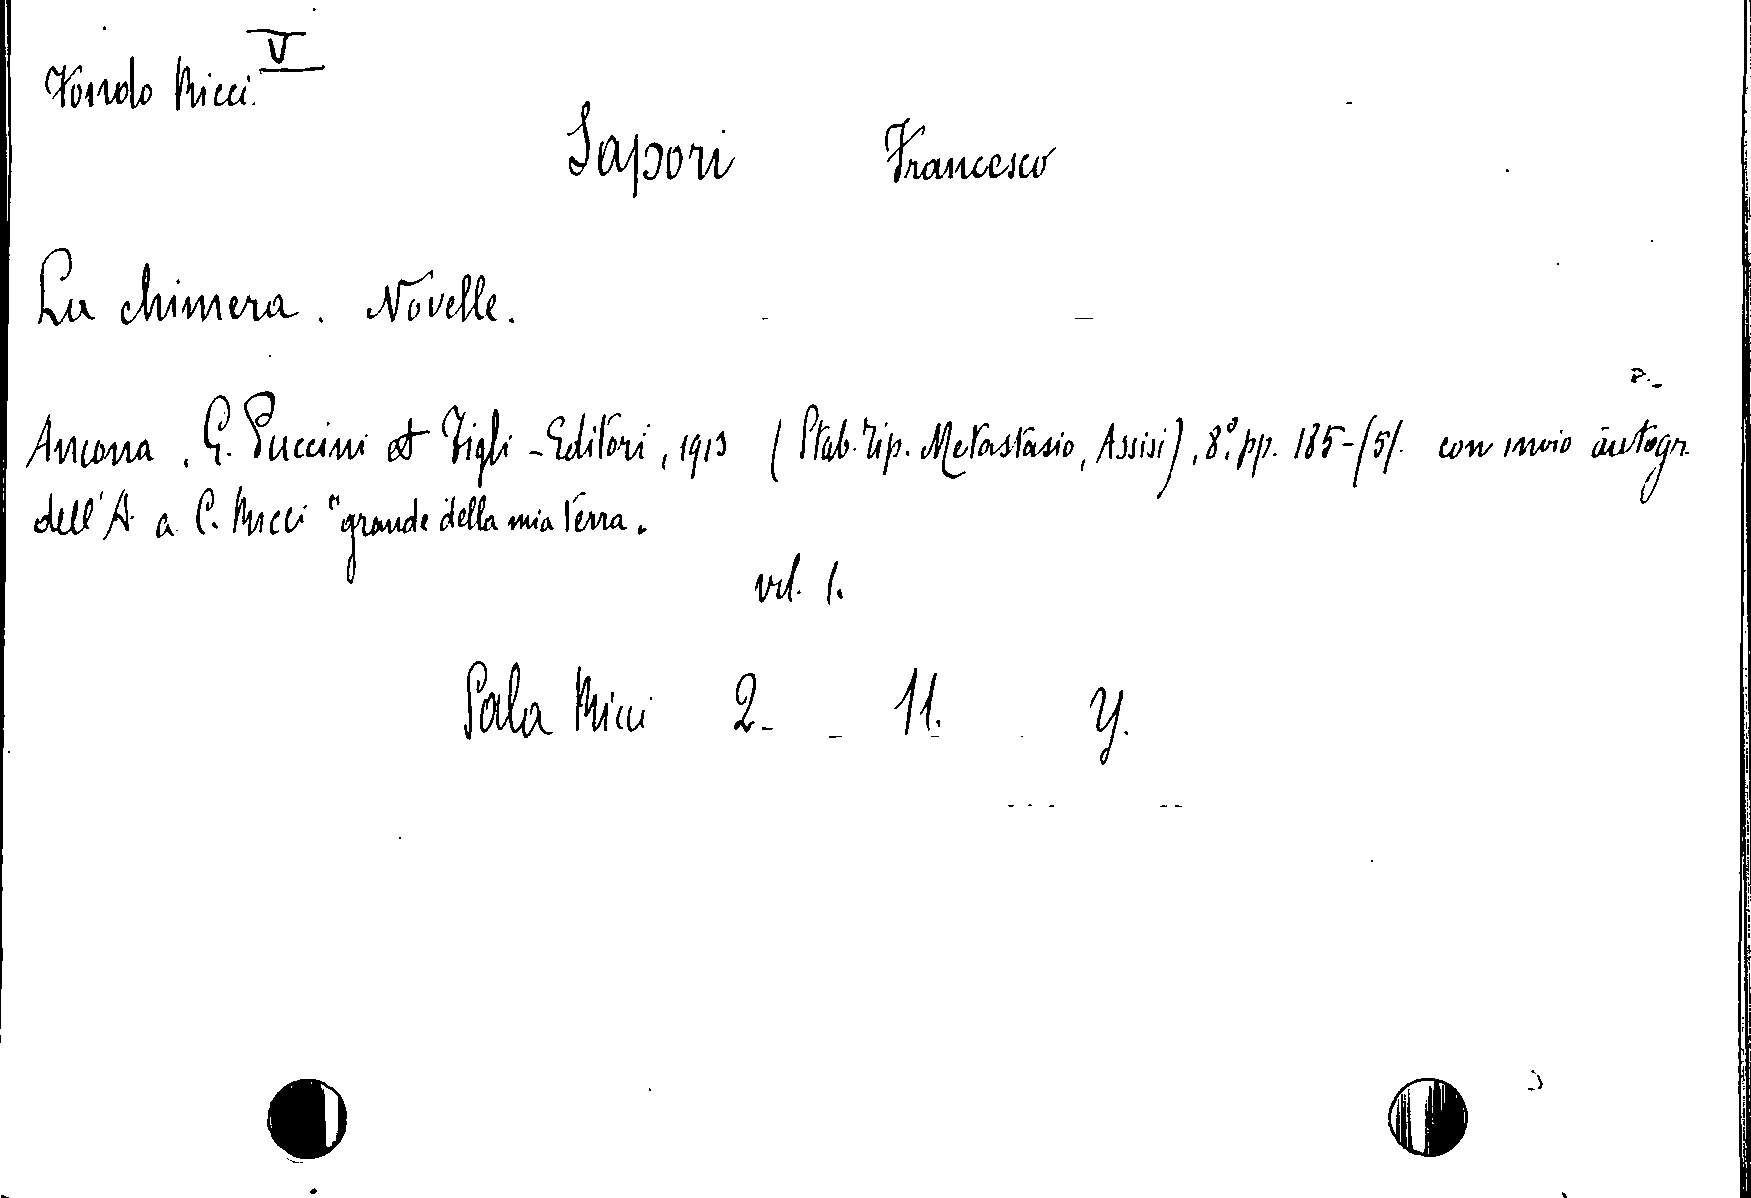 Fondo Ricci. V
Sapori Francesco
La chimera. Novelle.
Ancona, G. Puccini et Figli - Editori, 1913 (Stab. Tip. Metastasio, Assisi), 8º, pp. 185-(5). con invio autogr.
dell'A. a C. Ricci "grande della mia terra.
vol. 1.
Sala Ricci 2. - 11. Y.